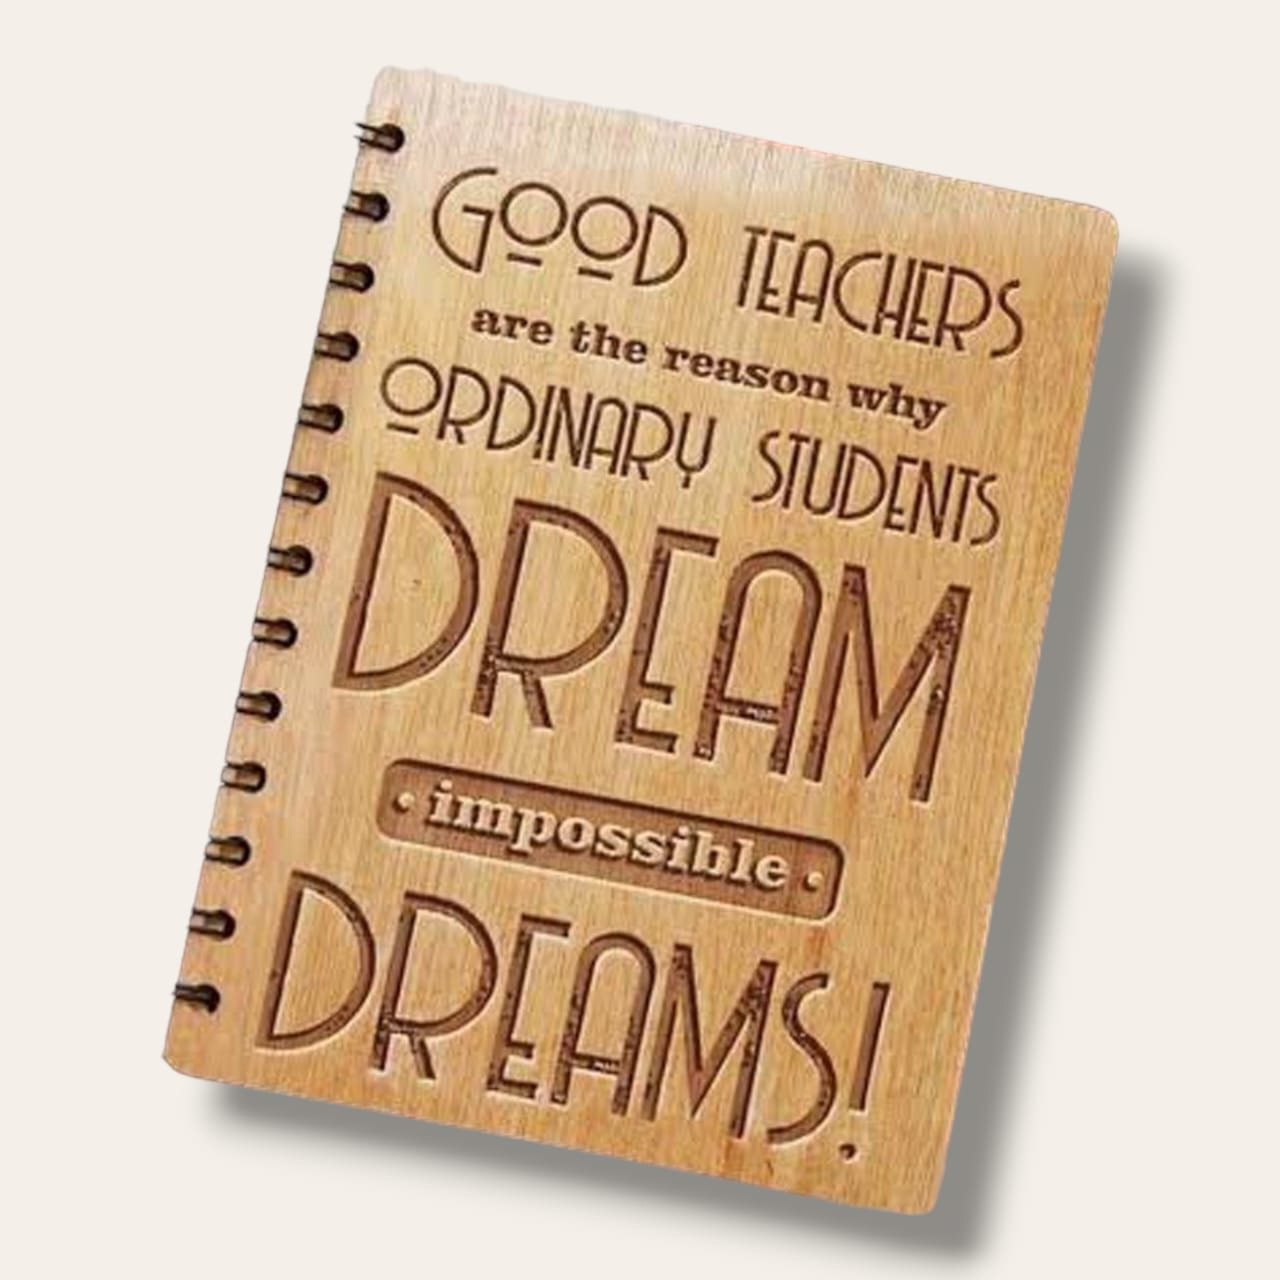 GOOD TEACHERS
are the reason why
ORDINARY STUDENTS
DREAM
• impossible •
DREAMS!